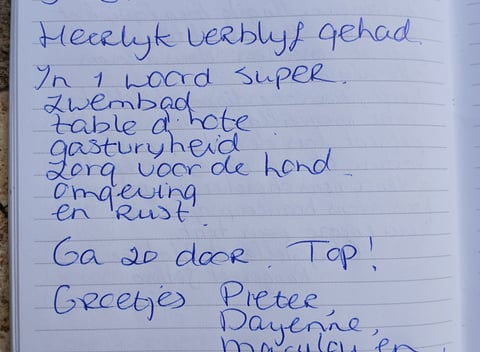 Heerlyk verblyf gehad.
In 1 woord super.
zwembad
table d'hote
gastvryheid
zorg voor de hond
omgeving
en Rust.
Ga zo door. Top!
Groetjes Pieter,
Dayenne,
en